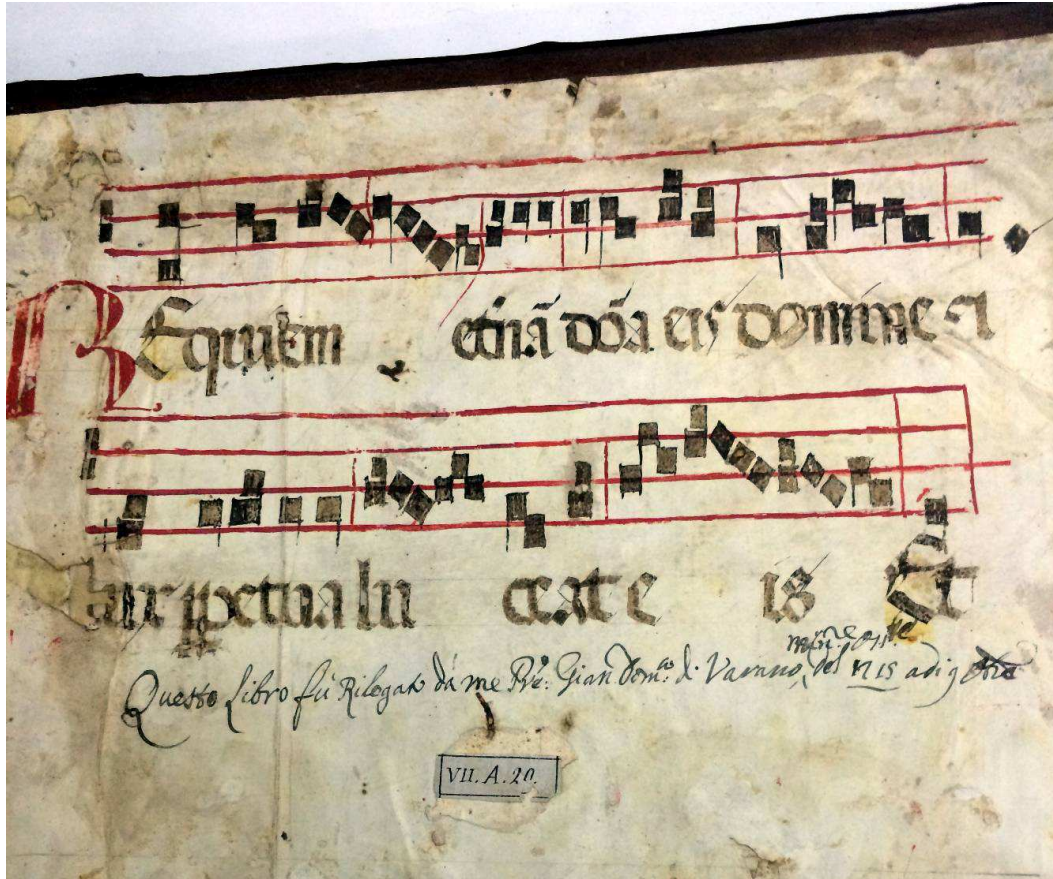 REquiem etnā dōa eis domine et
lux ppetua lu ceat e is
Questo Libro fù Rilegato dà me Pre: Gian Dom:co di Varano, del 1715 adi 9
VII. A. 20.